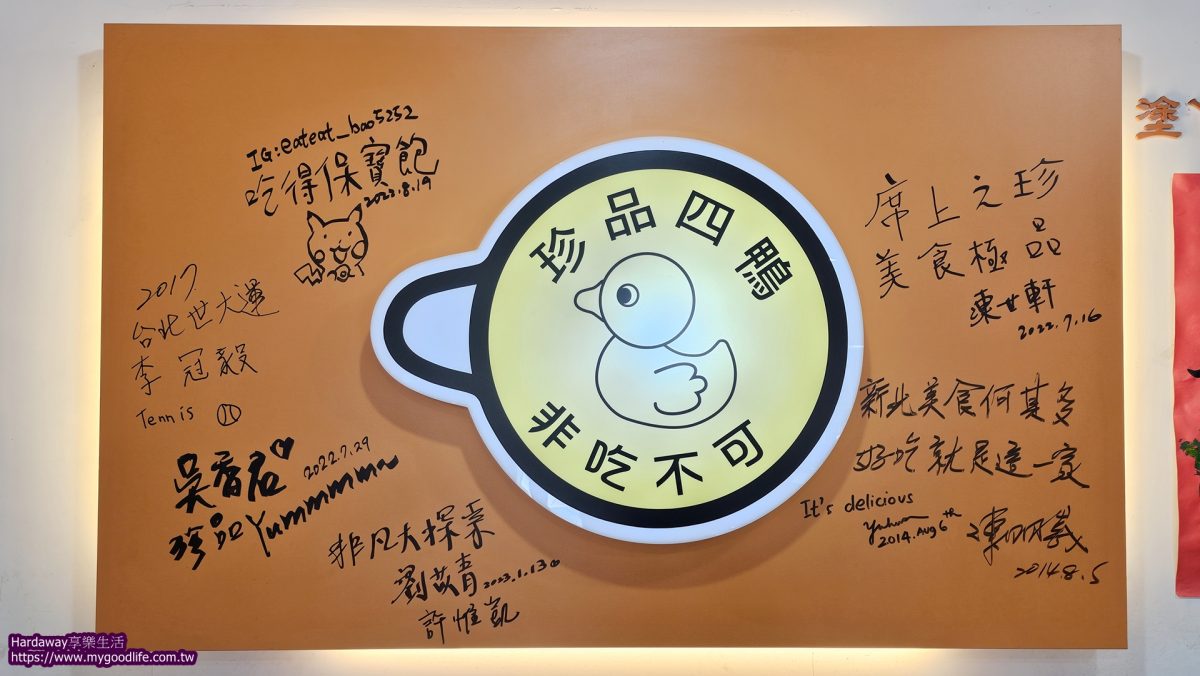 IG:eateat_bao5252
吃得保寶飽
2023.8.19
2017
台北世大運
李冠毅
Tennis
吳香君
2022.7.29
珍品Yummmmm~
非凡大探索
劉苡青 2023.1.13
許惟凱
珍品四鴨
非吃不可
席上之珍
美食極品
陳世軒
2022.7.16
新北美食何其多
好吃就是這一家
It's delicious
2014.Aug 6th
2014.8.5
塗
Hardaway享樂生活
https://www.mygoodlife.com.tw